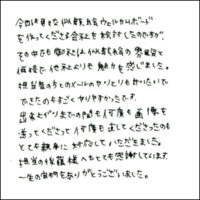 今回は色々な似顔絵ウェルカムボード
を作ってくださる会社を検討したのですが、
その中でも御社は似顔絵の雰囲気と
価格で他社よりも魅力を感じました。
担当者の方とのメールのやりとりも
できたのもすごくやりやすかったです。
出来上がりまでの間も何度も画像を
送ってくださって何度も直してくださったのも
とても親身に対応していただきました。
担当の後藤様へもとても感謝しています。
一生の宝物をありがとうございました。